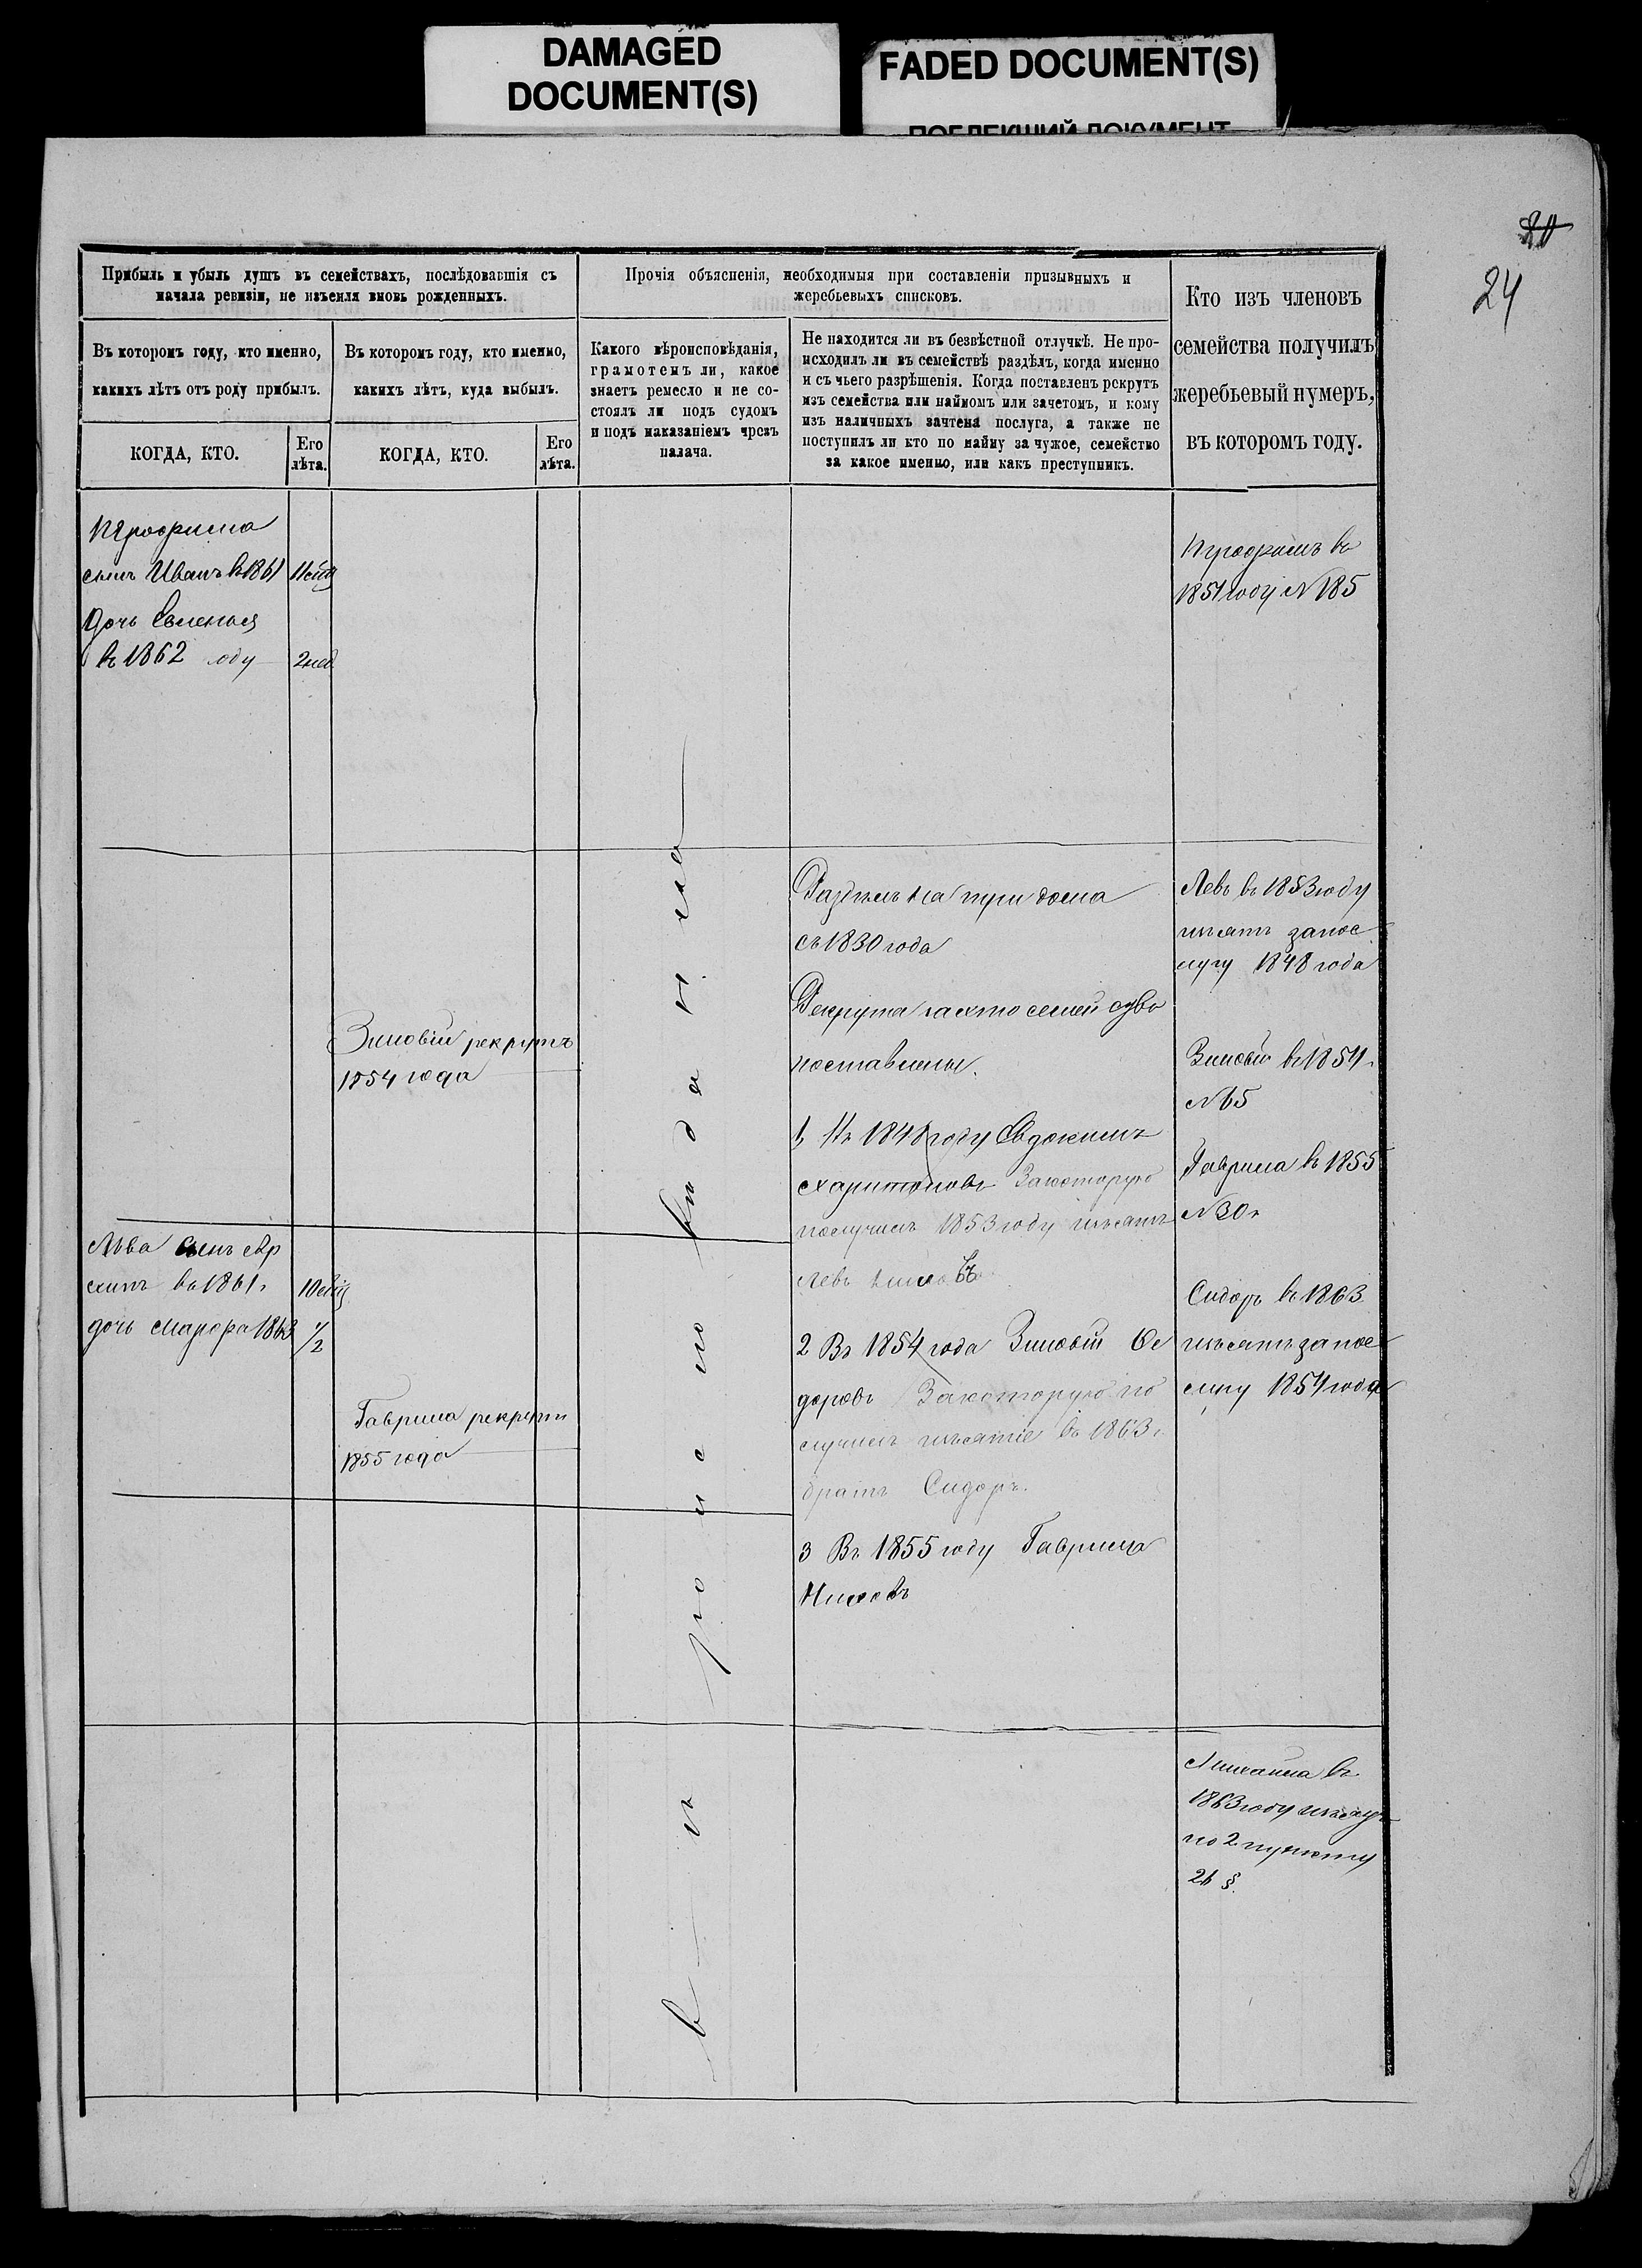 DAMAGED
DOCUMENT(S)
FADED DOCUMENT(S)
ПОБЛЕКШИЙ ДОКУМЕНТ
20
24
Прибыль и убыль душъ въ семействахъ, послѣдовавшія съ
начала ревизіи, не изъемля вновь рожденныхъ.
Прочія объясненія, необходимыя при составленіи призывныхъ и
жеребьевыхъ списковъ.
Кто изъ членовъ
семейства получилъ
жеребьевый нумеръ,
въ которомъ году.
Въ которомъ году, кто именно,
какихъ лѣтъ отъ роду прибылъ.
Въ которомъ году, кто именно,
какихъ лѣтъ, куда выбылъ.
Какого вѣроисповѣданія,
грамотенъ ли, какое
знаетъ ремесло и не со-
стоялъ ли подъ судомъ
и подъ наказаніемъ чрезъ
палача.
Не находится ли въ безвѣстной отлучкѣ. Не про-
исходилъ ли въ семействѣ раздѣлъ, когда именно
и съ чьего разрѣшенія. Когда поставленъ рекрутъ
изъ семейства или наймомъ или зачетомъ, и кому
изъ наличныхъ зачтена послуга, а также не
поступилъ ли кто по найму за чужое, семейство
за какое именно, или какъ преступникъ.
КОГДА, КТО.
Его
лѣта.
КОГДА, КТО.
Его
лѣта.
Трофима
сынъ Иванъ въ 1861
Дочь
въ 1862 году 2 нед
Трофимъ въ
1851 году № 185
Раздѣлъ на три дома
съ 1830 года
Рекрута
поставлены.
1, Въ 1848 году Евдокимъ
Харитоновъ За которую
получилъ 1853 году изъятъ
Левъ
2 Въ 1854 года Зиновій Фе
доровъ За которую по
лучилъ изъятіе въ 1863 г.
братъ Сидоръ.
3 Въ 1855 году Гаврила
Левъ въ 1853 году
изъятъ за пос
лугу 1848 года
Зиновій въ 1854 г
№ 65
Гаврила въ 1855
№ 30
Сидоръ въ 1863
изъятъ за пос
лугу 1854 года
Зиновій рекрутъ
1854 года
Льва сынъ Ар
хипъ въ 1861 г.
дочь Марфа 1863 1/2
Гаврила рекрутъ
1855 года
1863 году
по 2 пункту
26 §.